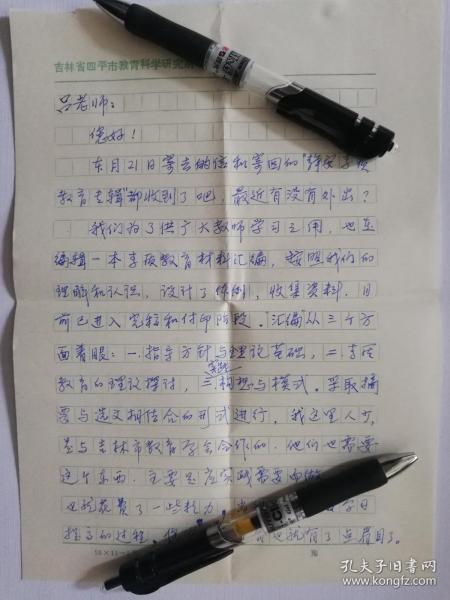 吉林省四平市教育科学研究所
吕老师：
您好！
本月21日寄去的信和寄回的"静安素质
教育专辑"都收到了吧，最近有没有外出？
我们为了供广大教师学习之用，也在
编辑一本素质教育材料汇编，按照我们的
理解和认识，设计了体例，收集资料，目
前已进入完稿和付印阶段。"汇编"从三个方
面着眼：一.指导方针与理论基础，二.素质
教育的理论探讨，三.实践构想与模式。采取摘
要与选文相结合的形式进行。我这里人少，
是与吉林市教育学会合作的。他们也需要
这个东西。主要是应实践需要而做
也就花费了一些精力，
指言的过程，也就有了点眉目了。
孔夫子旧书网
www.kongfz.com